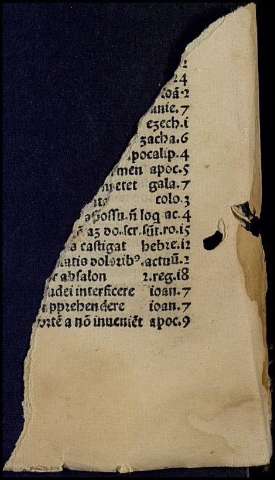 2
24
ioã·2
anie.7
ezech.i
zacha.6
pocalip.4
men apoc.5
metet gala.7
colo.3
possu. ñ loq ac.4
ñ aʒ do. scr. sũt. ro. 15
a castigat hebre. 12
tatis doloribꝰ. actuũ. 2
r absalon 2. reg. 18
udei interficere ioan. 7
pprehendere ioan. 7
ortē a nõ inueniẽt apoc. 9